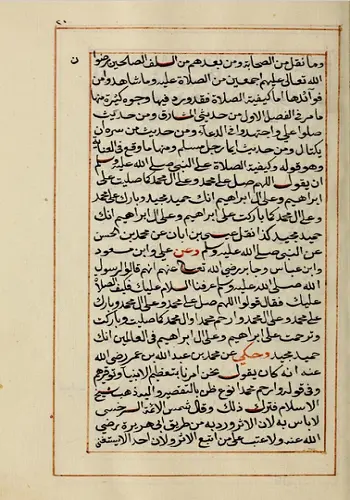 وما نقل من الصحابة ومن بعدهم من السلف الصالحين رضوان
الله تعالى عليهم اجمعين من الصلاة عليه وما شاهدوا من
فوائدها اما كيفية الصلاة فقد ورد فيها وجوه كثيرة منها
ما مر في الفصل الاول من حديثي ومن حديث
صلوا علي واجتهدوا في الدعاء ومن حديث من سره ان
يكتال ومن حديث ايما رجل مسلم ومنها ما وقع في
وهو قوله وكيفية الصلاة على النبي صلى الله عليه وسلم
ان يقول اللهم صل على محمد وعلى ال محمد كما صليت على
ابراهيم وعلى ال ابراهيم انك حميد مجيد وبارك على محمد
وعلى ال محمد كما باركت على ابراهيم وعلى ال ابراهيم انك
حميد مجيد كذا نقل عيسى بن ابان عن محمد بن الحسن
عن النبي صلى الله عليه وسلم وعن علي وابن مسعود
وابن عباس وجابر رضي الله تعالى عنهم انهم قالوا لرسول
الله صلى الله عليه وسلم عرفنا السلام عليك فكيف الصلاة
عليك فقال قولوا اللهم صل على محمد وعلى ال محمد وبارك
على محمد وعلى ال محمد وارحم محمدا وال محمد كما صليت وباركت
وترحمت على ابراهيم وعلى ال ابراهيم في العالمين انك
حميد مجيد وحكي عن محمد بن عبد الله بن عمر رضي الله
عنه انه كان يقول نحن امرنا بتعظيم الانبياء وتوقيرهم
وفي قوله وارحم محمدا نوع ظن بالتقصير واليه ذهب شيخ
الاسلام فترك ذلك وقال شمس الائمة السرخسي
لا باس به لان الاثر ورد به من طريق ابي هريرة رضي
الله عنه ولا عتب على من اتبع الاثر ولان احدا لا يستغني